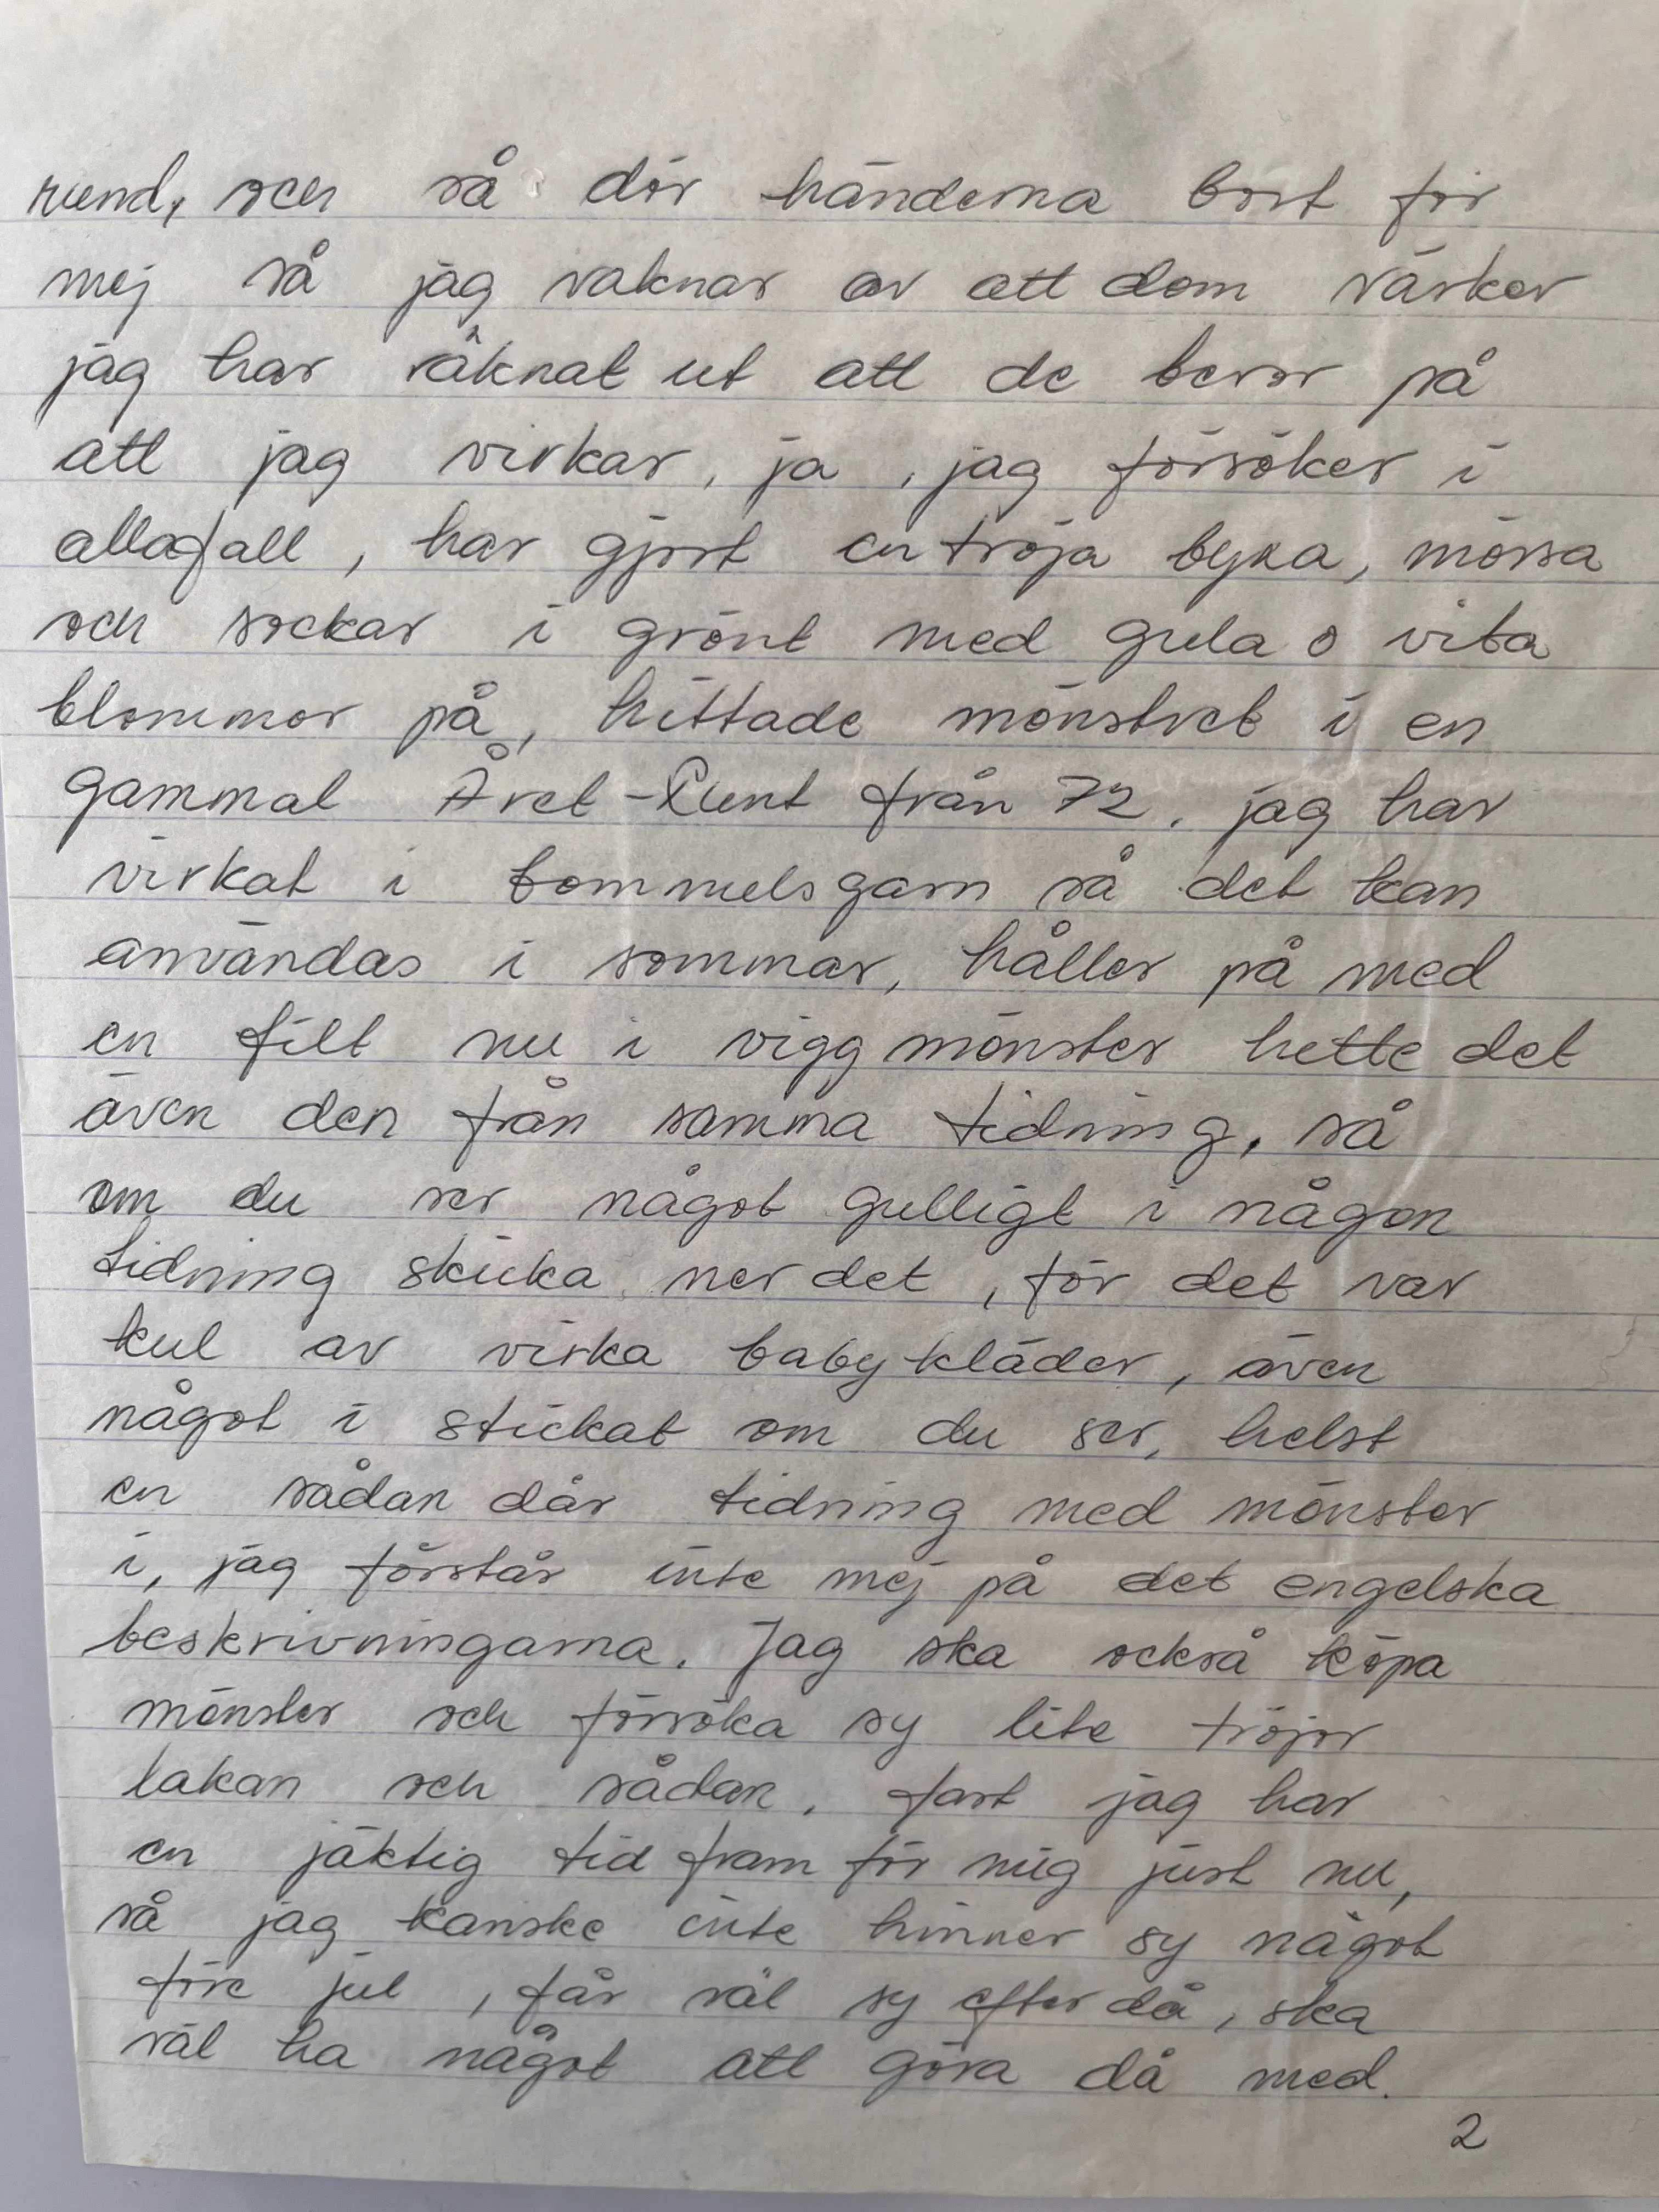 rund, och så dör händerna bort för
mej så jag vaknar av att dom värker
jag har räknat ut att de beror på
att jag virkar, ja, jag försöker i
allafall, har gjort en tröja byxa, mössa
och sockar i grönt med gula o vita
blommor på, hittade mönstret i en
gammal Året-Runt från 72. jag har
virkat i bommulsgarn så det kan
användas i sommar, håller på med
en filt nu i vigg mönster hette det
även den från samma tidning, så
om du ser något gulligt i någon
tidning skicka ner det, för det var
kul av virka baby kläder, även
något i stickat om du ser, helst
en sådan där tidning med mönster
i, jag förstår inte mej på det engelska
beskrivningarna. Jag ska också köpa
mönster och försöka sy lite tröjor
lakan och sådan. fast jag har
en jäktig tid fram för mig just nu,
så jag kanske inte hinner sy något
före jul, får väl sy efter då, ska
väl ha något att göra då med.
2